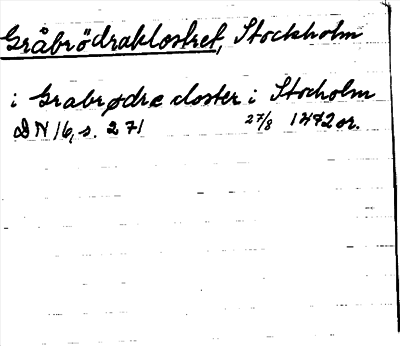 Gråbrödraklostret, Stockholm
i Grabrødræ closter i Stocholm
DN 16, s. 271 27/8 1472 or.